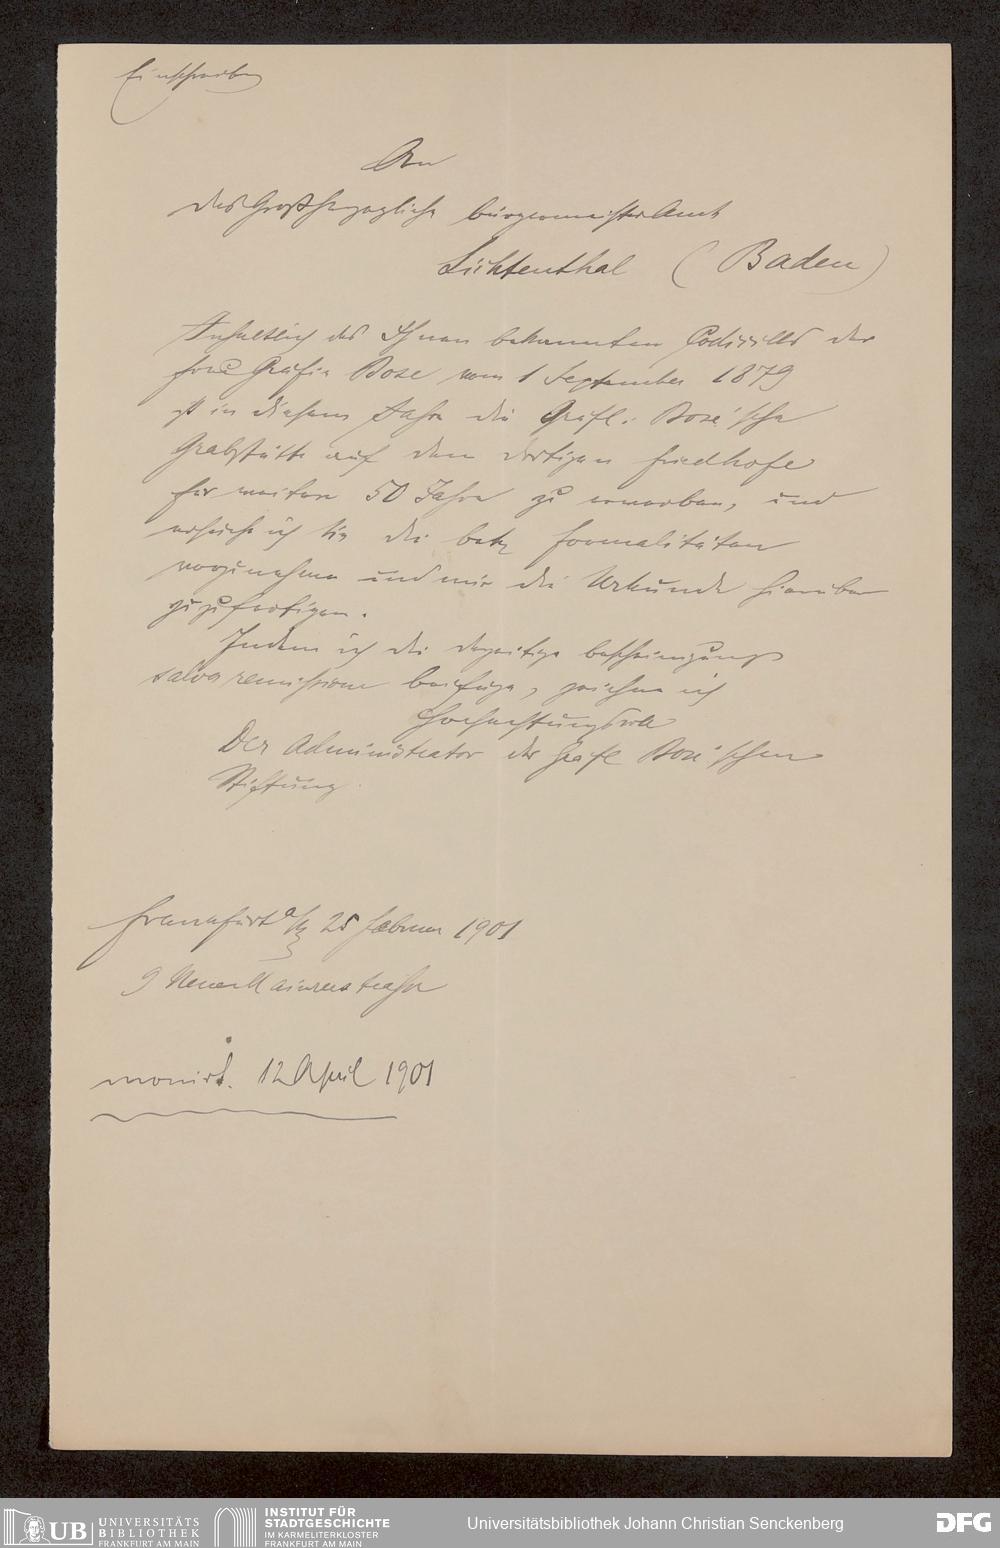 Einschreiben
An
das Großherzogliche Bürgermeister Amt
Lichtenthal (Baden)
Inhaltlich des Ihnen bekannten Codizills der
Frau Gräfin Bose vom 1 September 1879
ist in diesem Jahre die Gräfl. Bose'sche
Grabstätte auf dem dortigen Friedhofe
für weitere 50 Jahre zu erwerben, und
ersuche ich Sie die betr Formalitäten
vorzunehmen und mir die Urkunde hierüber
zuzufertigen.
Indem ich die derzeitige Bescheinigung
salva remissione beifüge, zeichne ich
Hochachtungsvoll
Der Administrator der Gräfl Bose'schen
Stiftung
Frankfurt a/M 25 Februar 1901
9 Neue Mainzerstraße
monirt. 12 April 1901
UB UNIVERSITÄTS
BIBLIOTHEK
FRANKFURT AM MAIN
INSTITUT FÜR
STADTGESCHICHTE
IM KARMELITERKLOSTER
FRANKFURT AM MAIN
Universitätsbibliothek Johann Christian Senckenberg
DFG